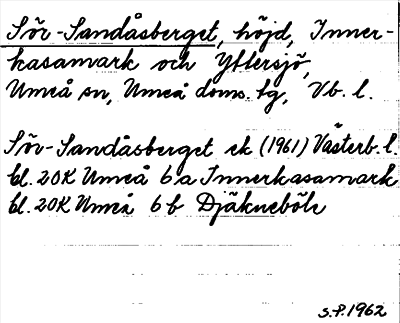 Sör-Sandåsberget, höjd, Inner-
kasamark och Yttersjö,
Umeå sn, Umeå doms. tg, Vb. l.
Sör-Sandåsberget ek (1961) Västerb. l.
bl. 20K Umeå 6 a Innerkasamark
bl. 20K Umeå 6 b Djäkneböle
S.P. 1962